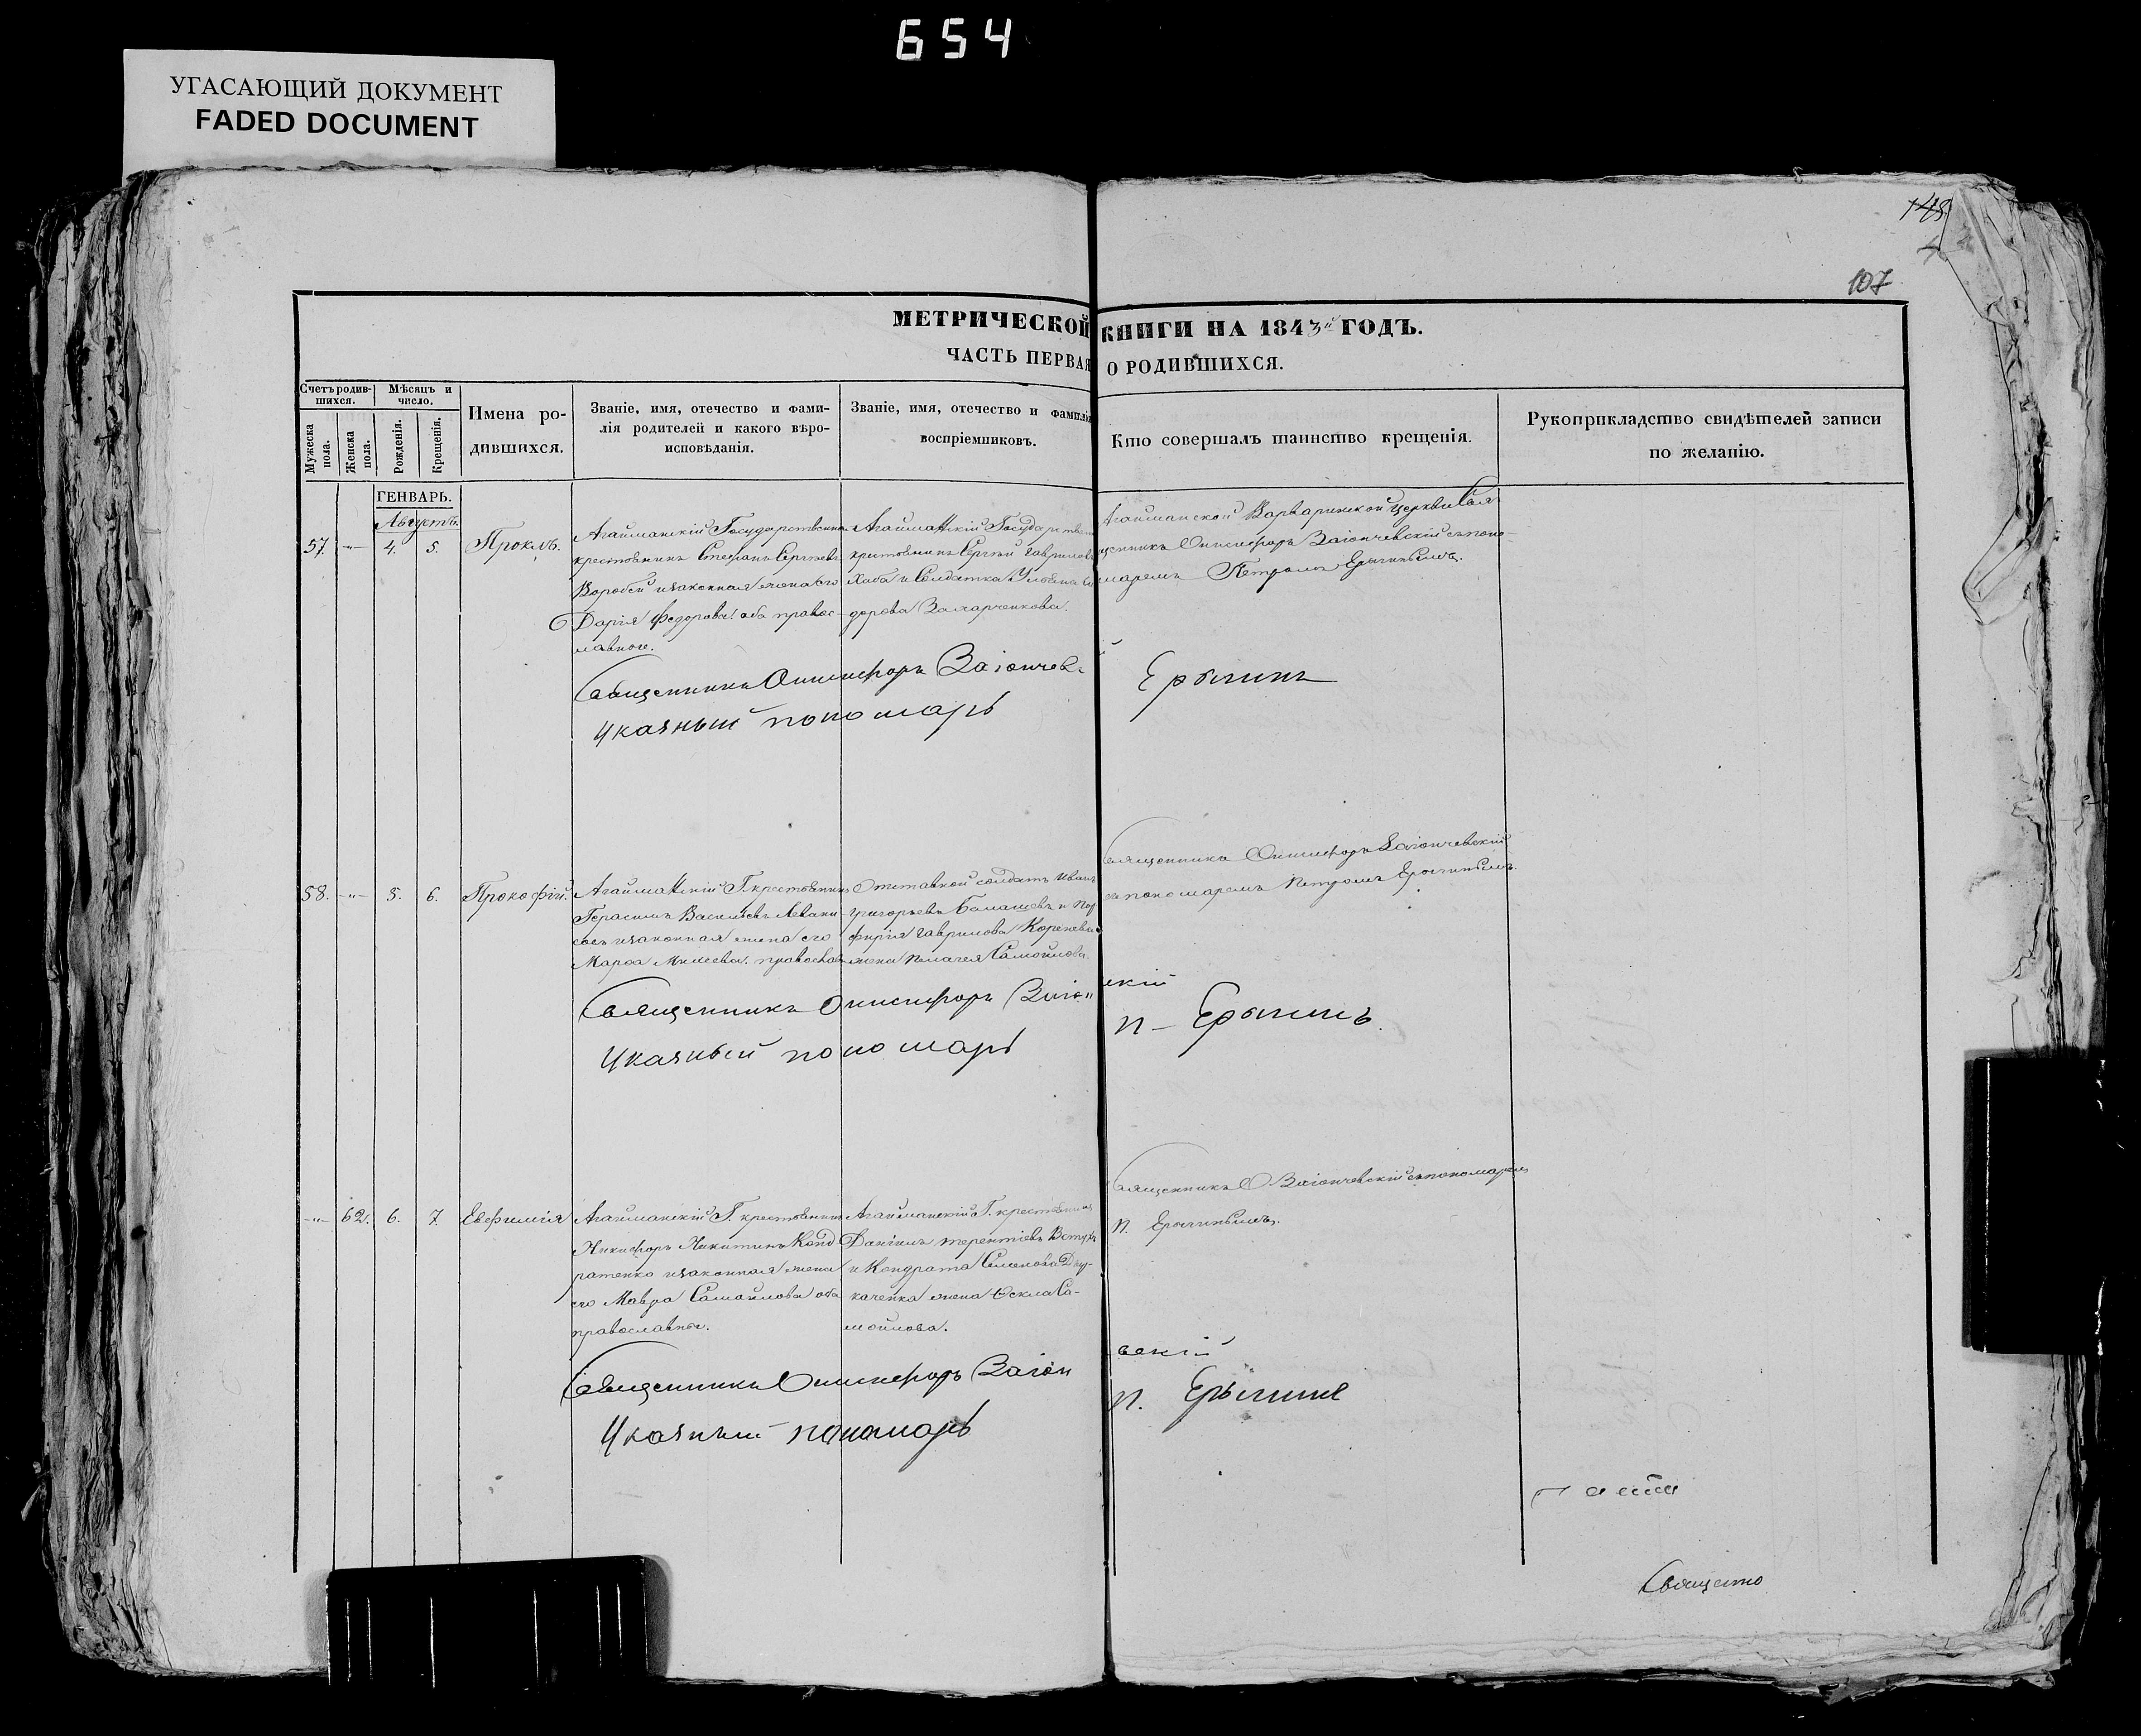 654
УГАСАЮЩИЙ ДОКУМЕНТ
FADED DOCUMENT
107
МЕТРИЧЕСКОЙ КНИГИ НА 1843й ГОДЪ.
ЧАСТЬ ПЕРВАЯ О РОДИВШИХСЯ.
Счетъ родив-
шихся.
Мужеска пола.
Женска пола.
Мѣсяцъ и
число.
Рожденія.
Крещенія.
Имена ро-
дившихся.
Званіе, имя, отечество и фами-
лія родителей и какого вѣро-
исповѣданія.
Званіе, имя, отечество и фамилія
воспріемниковъ.
Кто совершалъ таинство крещенія.
Рукоприкладство свидѣтелей записи
по желанію.
ГЕНВАРЬ.
Августъ.
57. -"- 4. 5. Проклъ.
Агайманскій Государственн.
крестьянинъ Стефанъ Сергѣевъ
Воробей и законная жена его
Дарія Федорова: оба правос-
лавные.
Агайманскій Государствен
крестьянинъ Сергѣй Гаврилов
Хаба и Солдатка Ульяна
дорова Захарченкова.
Агайманской Варваринской церкви Свя
щенникъ Онисифоръ Заіончевскій съ поно-
маремъ Петромъ Ерыгинымъ.
Священникъ Онисифоръ Заіончевс й
Указный пономарь Ерыгинъ
58. -"- 5. 6. Прокофій.
Агайманскій Г. крестьянинъ
Герасимъ Васильевъ
и законная жена его
Марѳа православ
Отставной солдатъ Иванъ
Григорьевъ Балашевъ и Пор
фирія Гаврилова Коренева
жена Пелагея Самойлова.
Священникъ Онисифоръ Заіончевскій
съ пономаремъ Петромъ Ерыгинымъ.
Священникъ Онисифоръ Заіон скій
Указный пономарь П- Ерыгинъ.
-"- 62. 6. 7. Евфимія
Агайманскій Г. крестьянинъ
Никифоръ Никитинъ Конд
ратенко и законная жена
его Мавра Самойлова оба
православные.
Агайманскій Г. крестьянинъ
Даніилъ Терентіевъ
и Кондрата Семенова
каченка жена Ѳекла Са-
мойлова.
Священникъ О Заіончевскій съ пономаремъ
П. Ерыгинымъ.
Священникъ Онисифоръ Заіон вскій
Указный пономарь П. Ерыгинъ
Священно